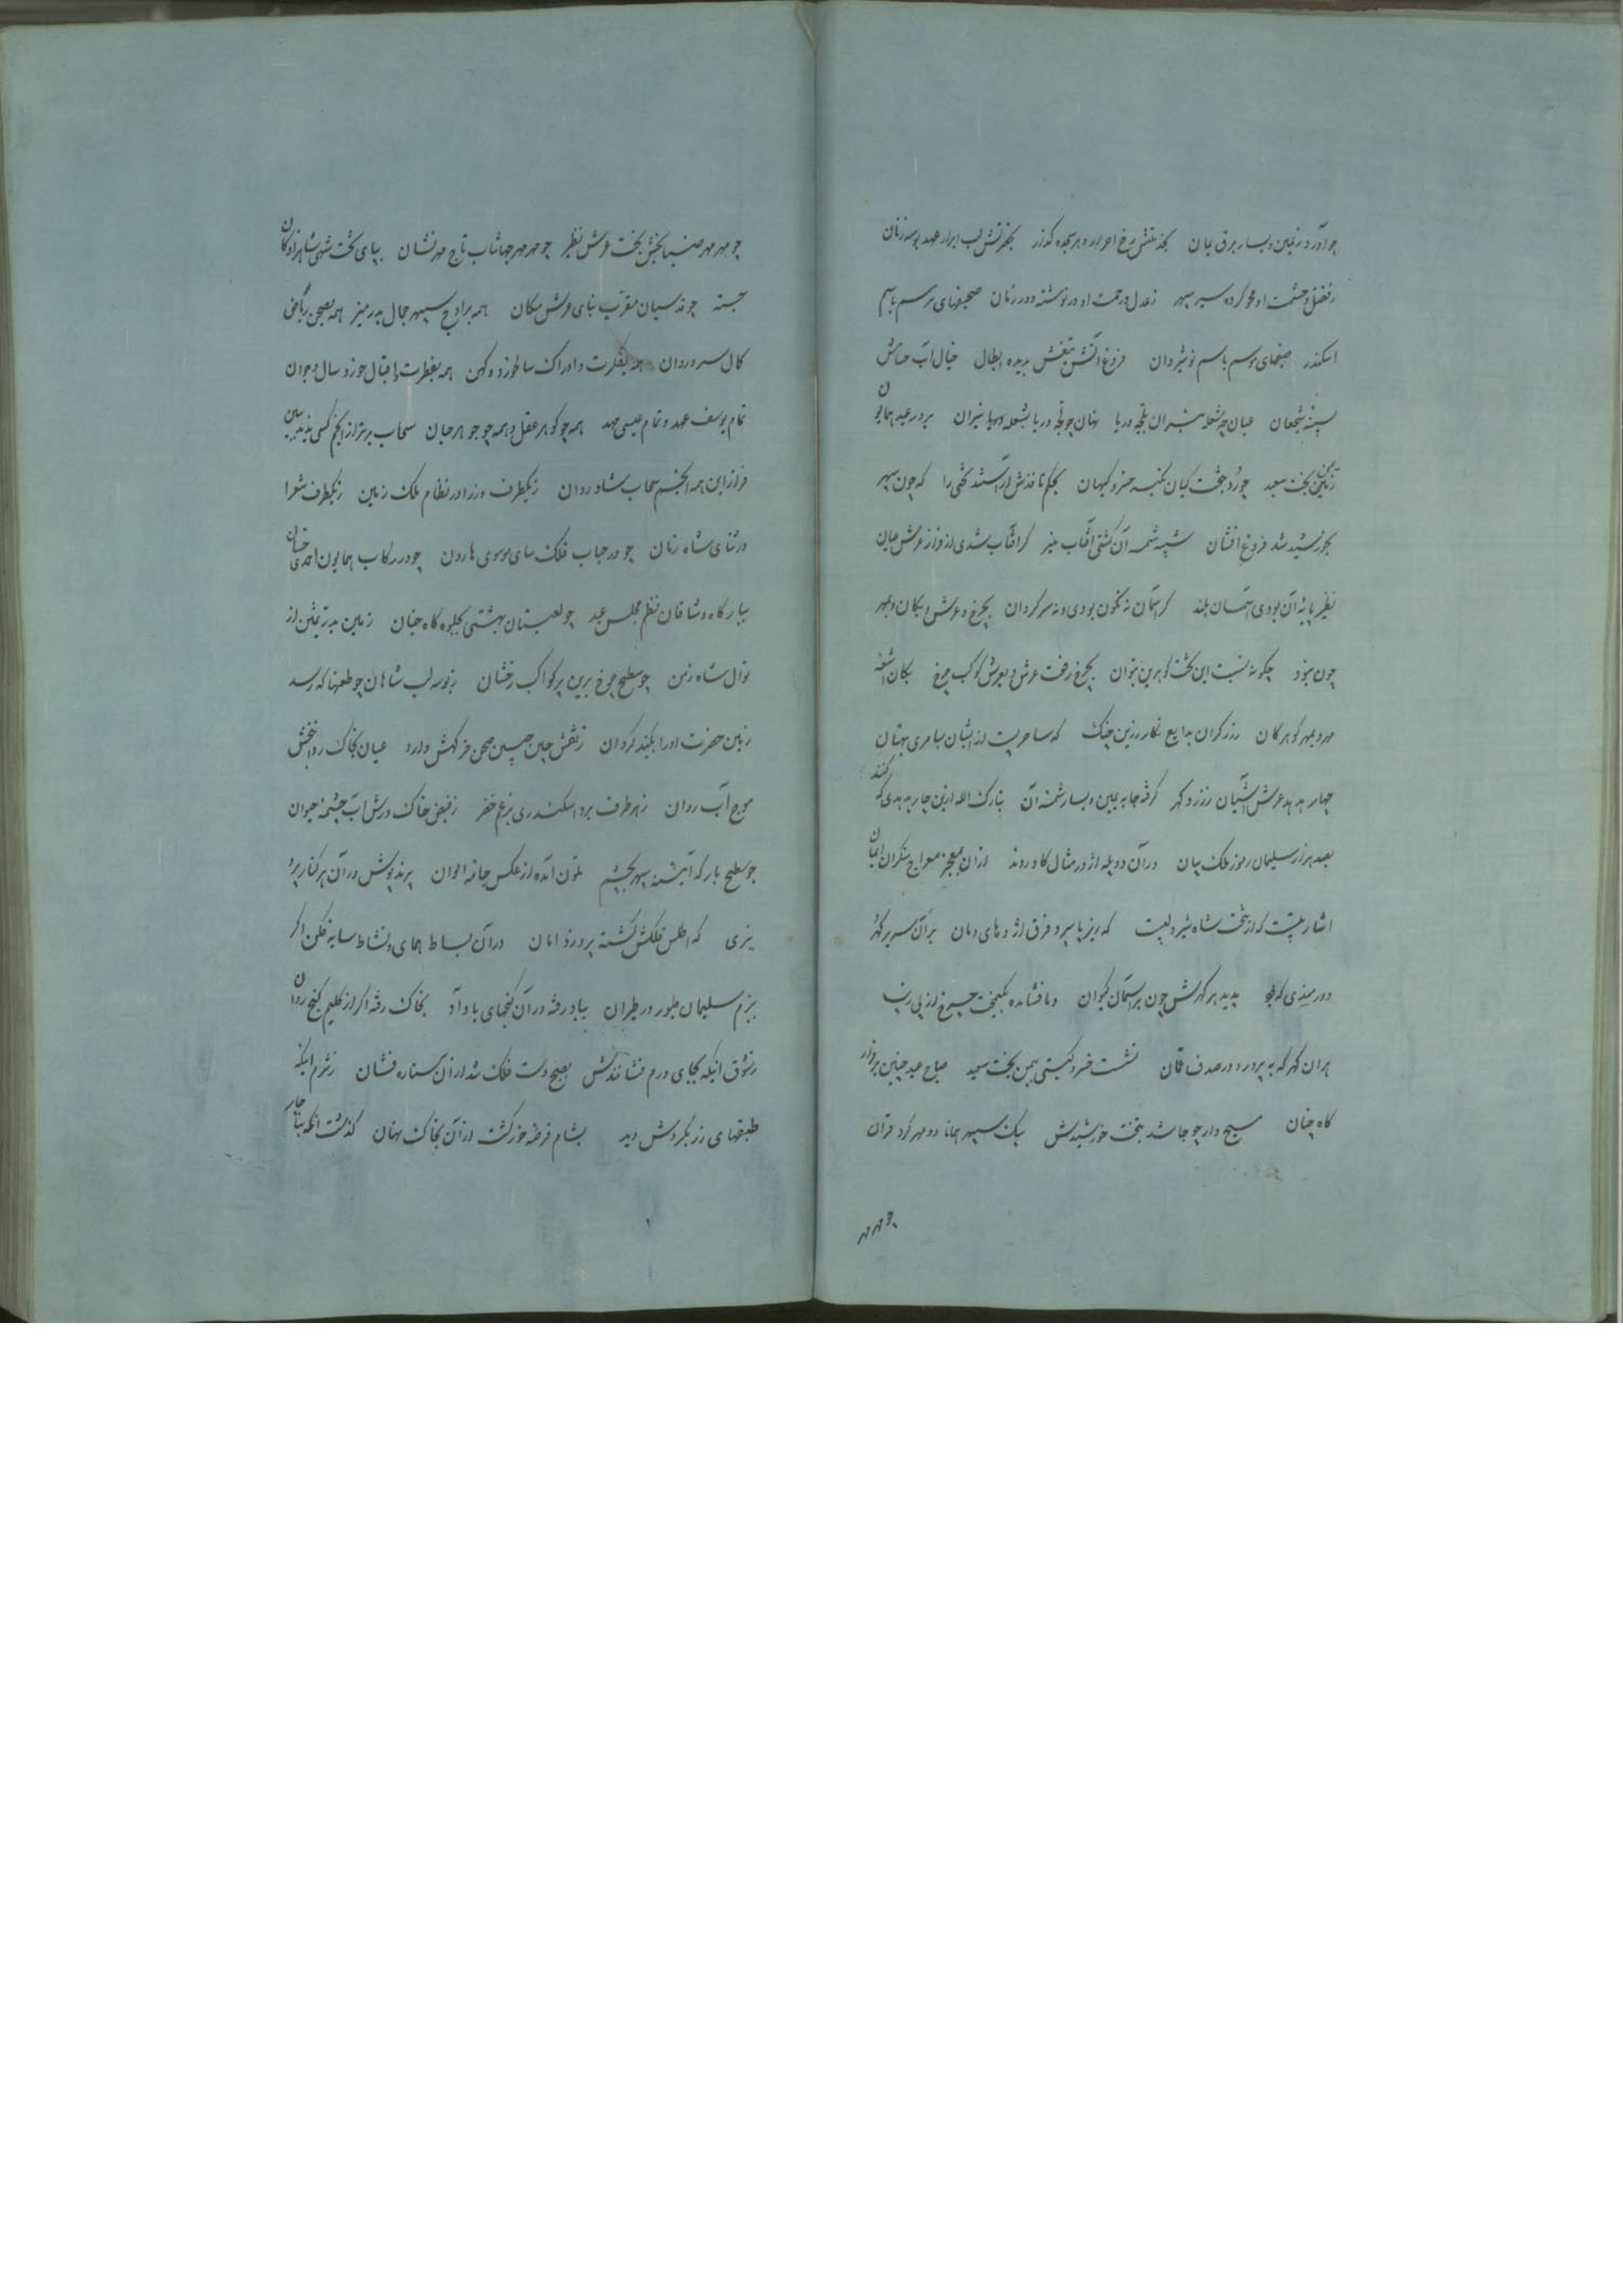 چو آرد ز یمین و یسار برق یمان بخدمتش رخ احرار دهر سجده گذار بحضرتش لب ابرار عهد بوسه زنان
ز فضل و حشمت او محو کرده سیر سپهر ز عدل و رحمت او در نوشته دور زمان صحیفهای مرسم باسم
اسکندر صفحهای موسم باسم نوشیروان فروغ آتش تیغش بدیده ابطال خیال آب حسامش
بسینه شجعان عیان چو شعله نیران بلجه دریا نهان چو لجه دریا بشعله نیران بروز عید همایون
زیمن بخت سعید چو زد بتخت کیان تکیه خسرو کیهان بحکم نافذش آراستند تختی را که چون سپهر
بخورشید شد فروغ افشان شبیه شمسه آن گشتی آفتاب منیر گر آفتاب شدی از فراز عرش عیان
نظیر پایه آن بودی آسمان بلند گر آسمان نه نگون بودی و نه سرگردان بچرخ و عرش و بکان و بمهر
چون نبود چگونه نسبت این تخت گوهرین بتوان بچرخ رفعت عرش و بعرش کوکب چرخ بکان اشعه
مهر و بمهر گوهر کان ز زرگران بدایع نگار زرین چنگ که ساحریست از ایشان بسامری بهتان
چهار هدهد عرش آشیان ز زر و گهر گرفته جا به یمین و یسار شمسه آن تبارک الله ازین چار هدهدی که کنند
بصد هزار سلیمان رموز ملک بیان در آن دو پله اژدر مثال کاوردند از آن بمعجز معراج منکران ایمان
اشارتیست که از تخت شاه شیر دلیست که زیر پا سپرد فرق اژدهای دمان بر آن سریر گهر
پدید هر گهرش چون بر آسمان کیوان
هر آن گهر که به پرورد در صدف عمان نشست خسرو گیتی بیمن بخت سعید صباح عید چنین بر فراز
گاه چنان مسیح وار چو جا شد بتخت خورشیدش بیک سپهر همانا دو مهر کرد قران
چو مهر
چو مهر مهر ضیا بخش بخت عرش نظیر چو مهر مهر جهانتاب تاج مهر نشان بپای تخت شهی شاهزادکان
جسته چو قدسیان مقرب بنای عرش مکان همه بر اوج سپهر جمال بدر منیر همه بصحن ریاض
کمال سرو روان همه بفکرت و ادراک سالخورد و کهن همه بفطرت و اقبال خورد سال و جوان
تمام یوسف عهد و تمام عیسی مهد همه چو گوهر عقل و همه چو جوهر جان سحاب برتر از انجم کسی ندید ببین
فراز این همه انجم سحاب شادروان ز یکطرف وزرا در نظام ملک زمین ز یکطرف شعرا
در ثنای شاه زمان چو در جناب فلک سای موسوی هارون چو در رکاب همایون احمدی حسان
ببارگاه وشاقان نظم مجلس عید چو لعبتان بهشتی بجلوه گاه جنان زمین بدره ثمین از
نوال شاه زمن چو سطح چرخ برین پر کواکب رخشان ز بوسه لب شاهان چو طعنها که رسد
زمین حضرت او را بگنبد گردان ز نقش چین جبین صحن خرگهش دارد عیان بخاک
موج آب روان ز هر طرف برد اسکندری برغم خضر ز فیض خاک درش آب چشمه حیوان
چو سطح بارگه آئینه سپهر بچشم ملون آمده از عکس جامه الوان پرند پوش در آن هر کنار
که اطلس فلکش گشته پرورد امان در آن بساط همای نشاط سایه فکن اگر
بزم سلیمان طیور در طیران بباد رفته در آن گنجهای باد آور بخاک رفته اگر از کلیم گنج روان
ز شوق اینکه بجای درم فشانندش بصبح دست فلک شد از آن ستاره فشان ز شرم اینکه
طبقهای زر بگردش دید بشام قرصه خور گشت از آن بخاک نهان گذشت آنکه